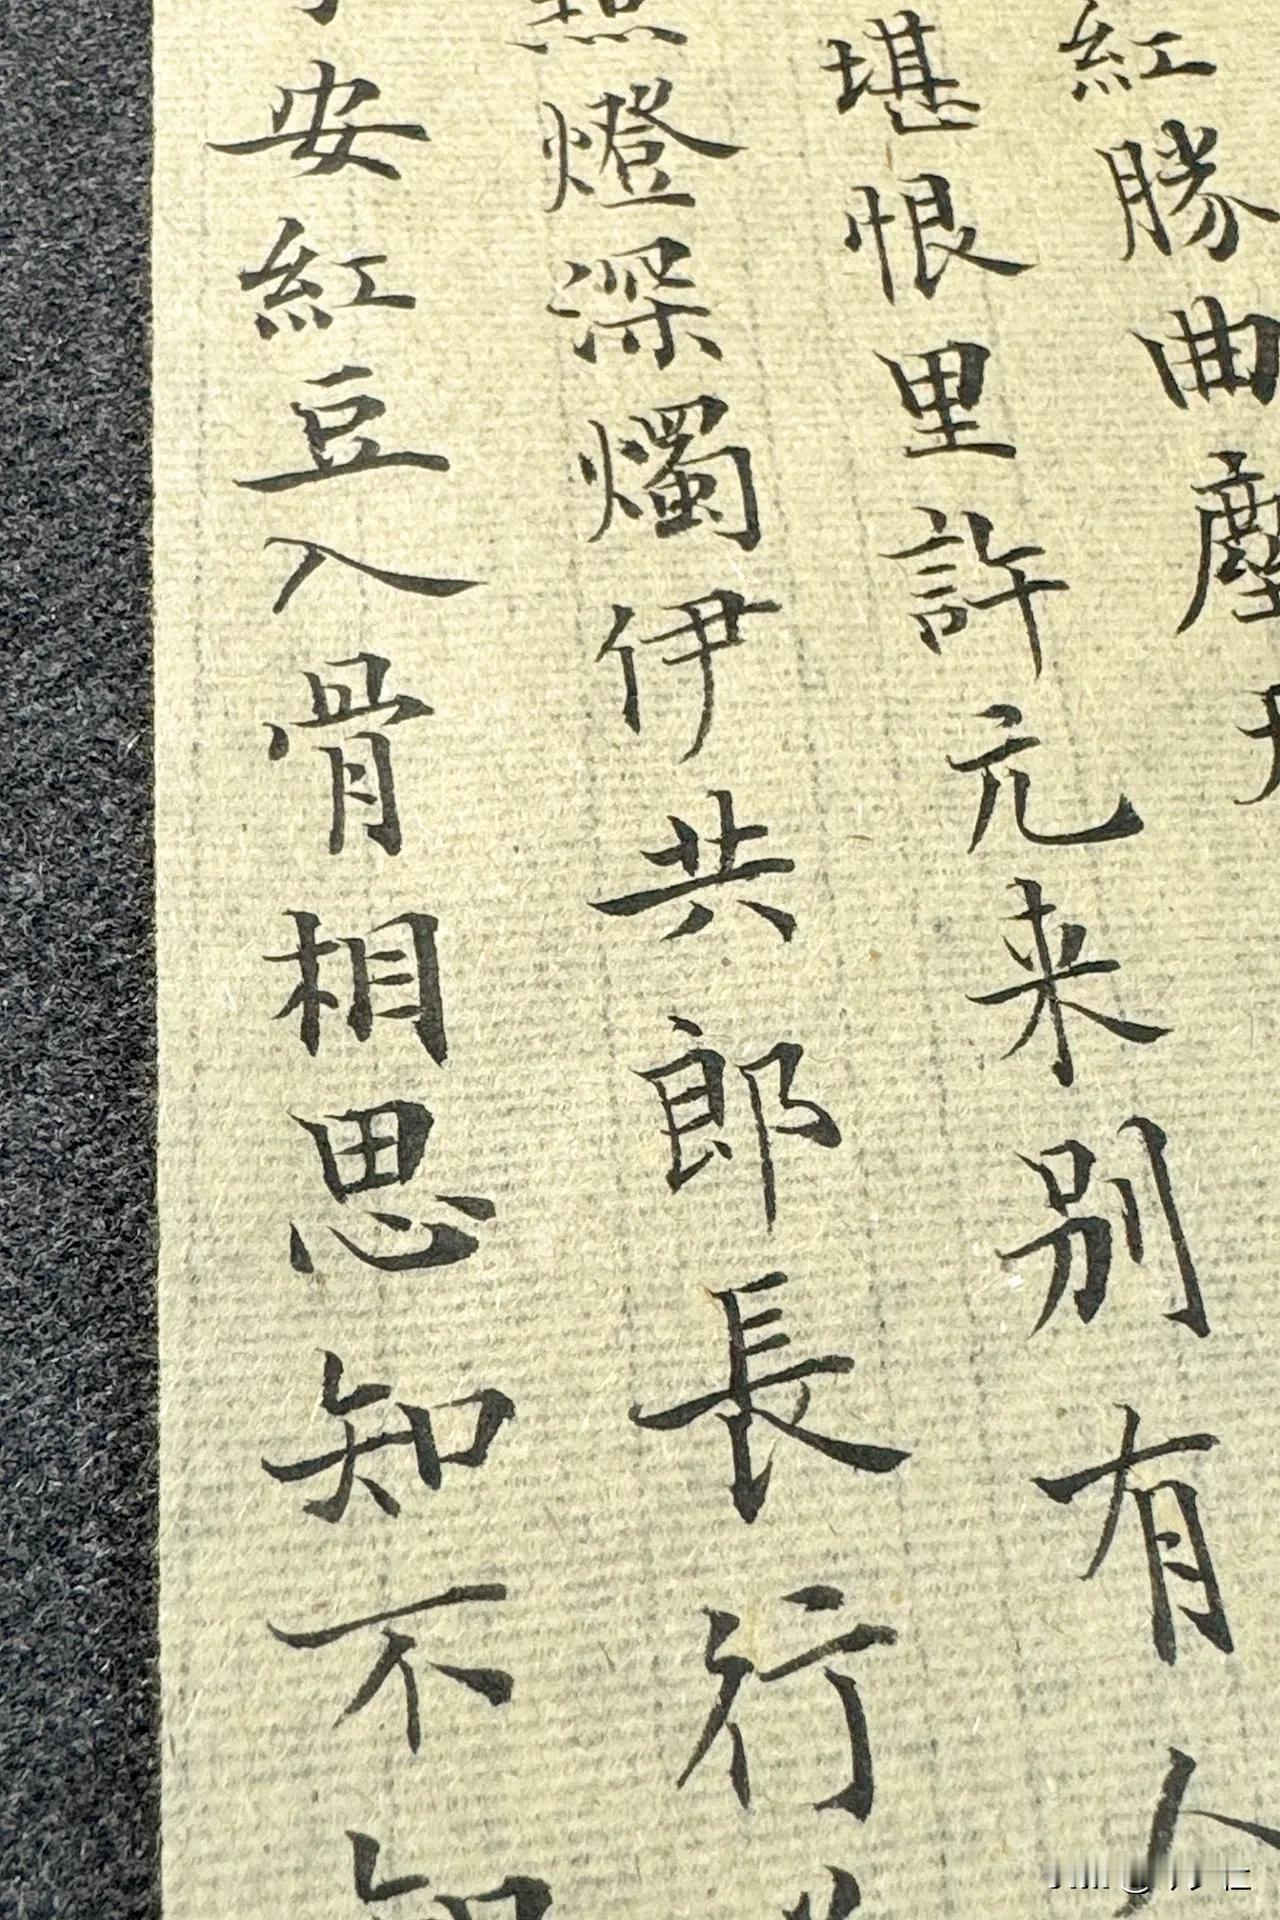 紅勝曲塵
堪恨里許元来别有人
燈深燭伊共郎長行
安紅豆入骨相思知不知